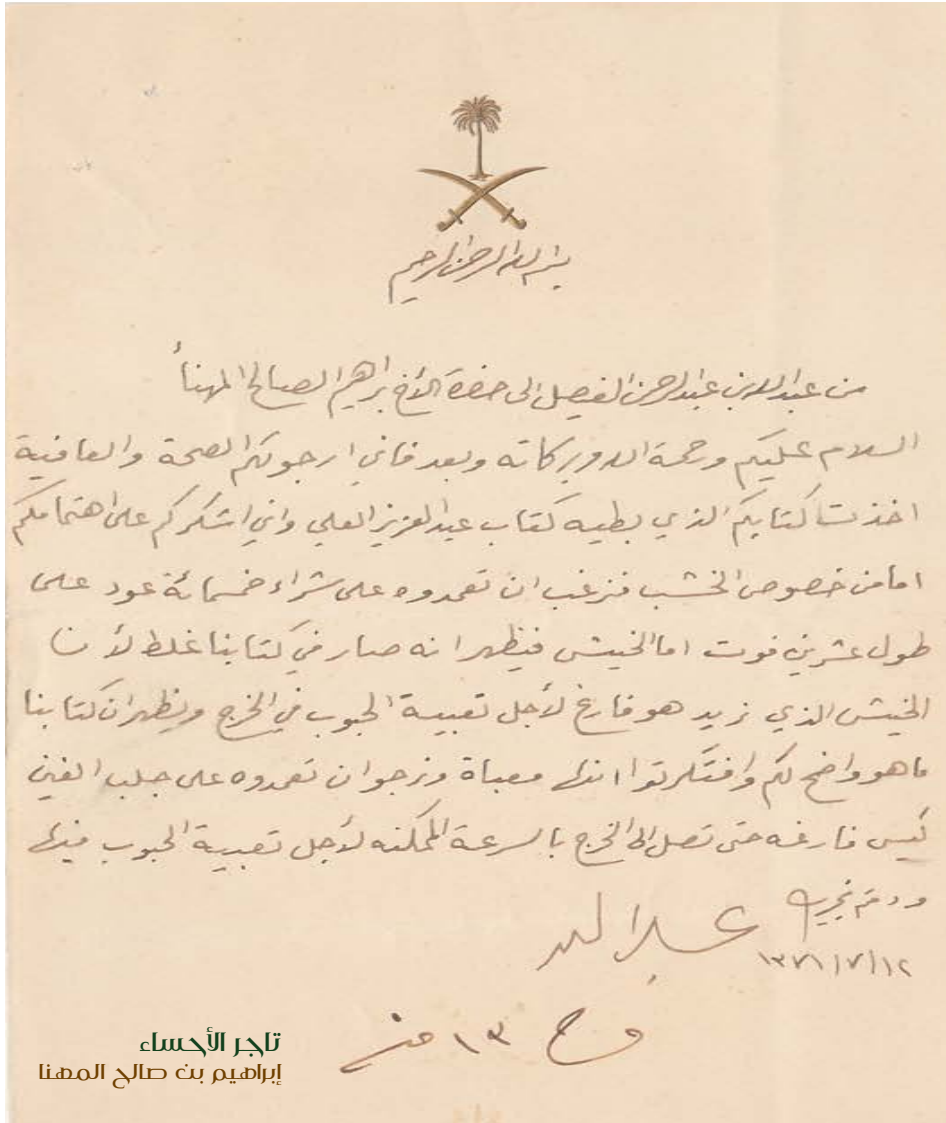 بسم الله الرحمن الرحيم
من عبدالله بن عبدالرحمن الفيصل الى حضرة الأخ براهيم الصالح المهنأ
السلام عليكم ورحمة الله وبركاته وبعد فاني ارجو لكم الصحة والعافية
اخذت كتابكم الذي بطيه كتاب عبدالعزيز العلي واني اشكركم على اهتمامكم
اما من خصوص الخشب فنرغب ان تعمدوه على شراء خمسمائة عود على
طول عشرين فوت اما الخيش فيظهر انه صار في كتابنا غلط لأن
الخيش الذي نريد هو فارغ لأجل تعبية الحبوب في الخرج ويظهر ان كتابنا
ما هو واضح لكم وافتكرتوا انها معباة ونرجو ان تعمدوه على جلب الفين
كيس فارغه حتى تصل الى الخرج بالسرعة الممكنه لأجل تعبية الحبوب فيها
ودمتم
عبدالله
١٣٧١/٧/١٢
١٣ منه
تاجر الأحساء
إبراهيم بن صالح المهنا